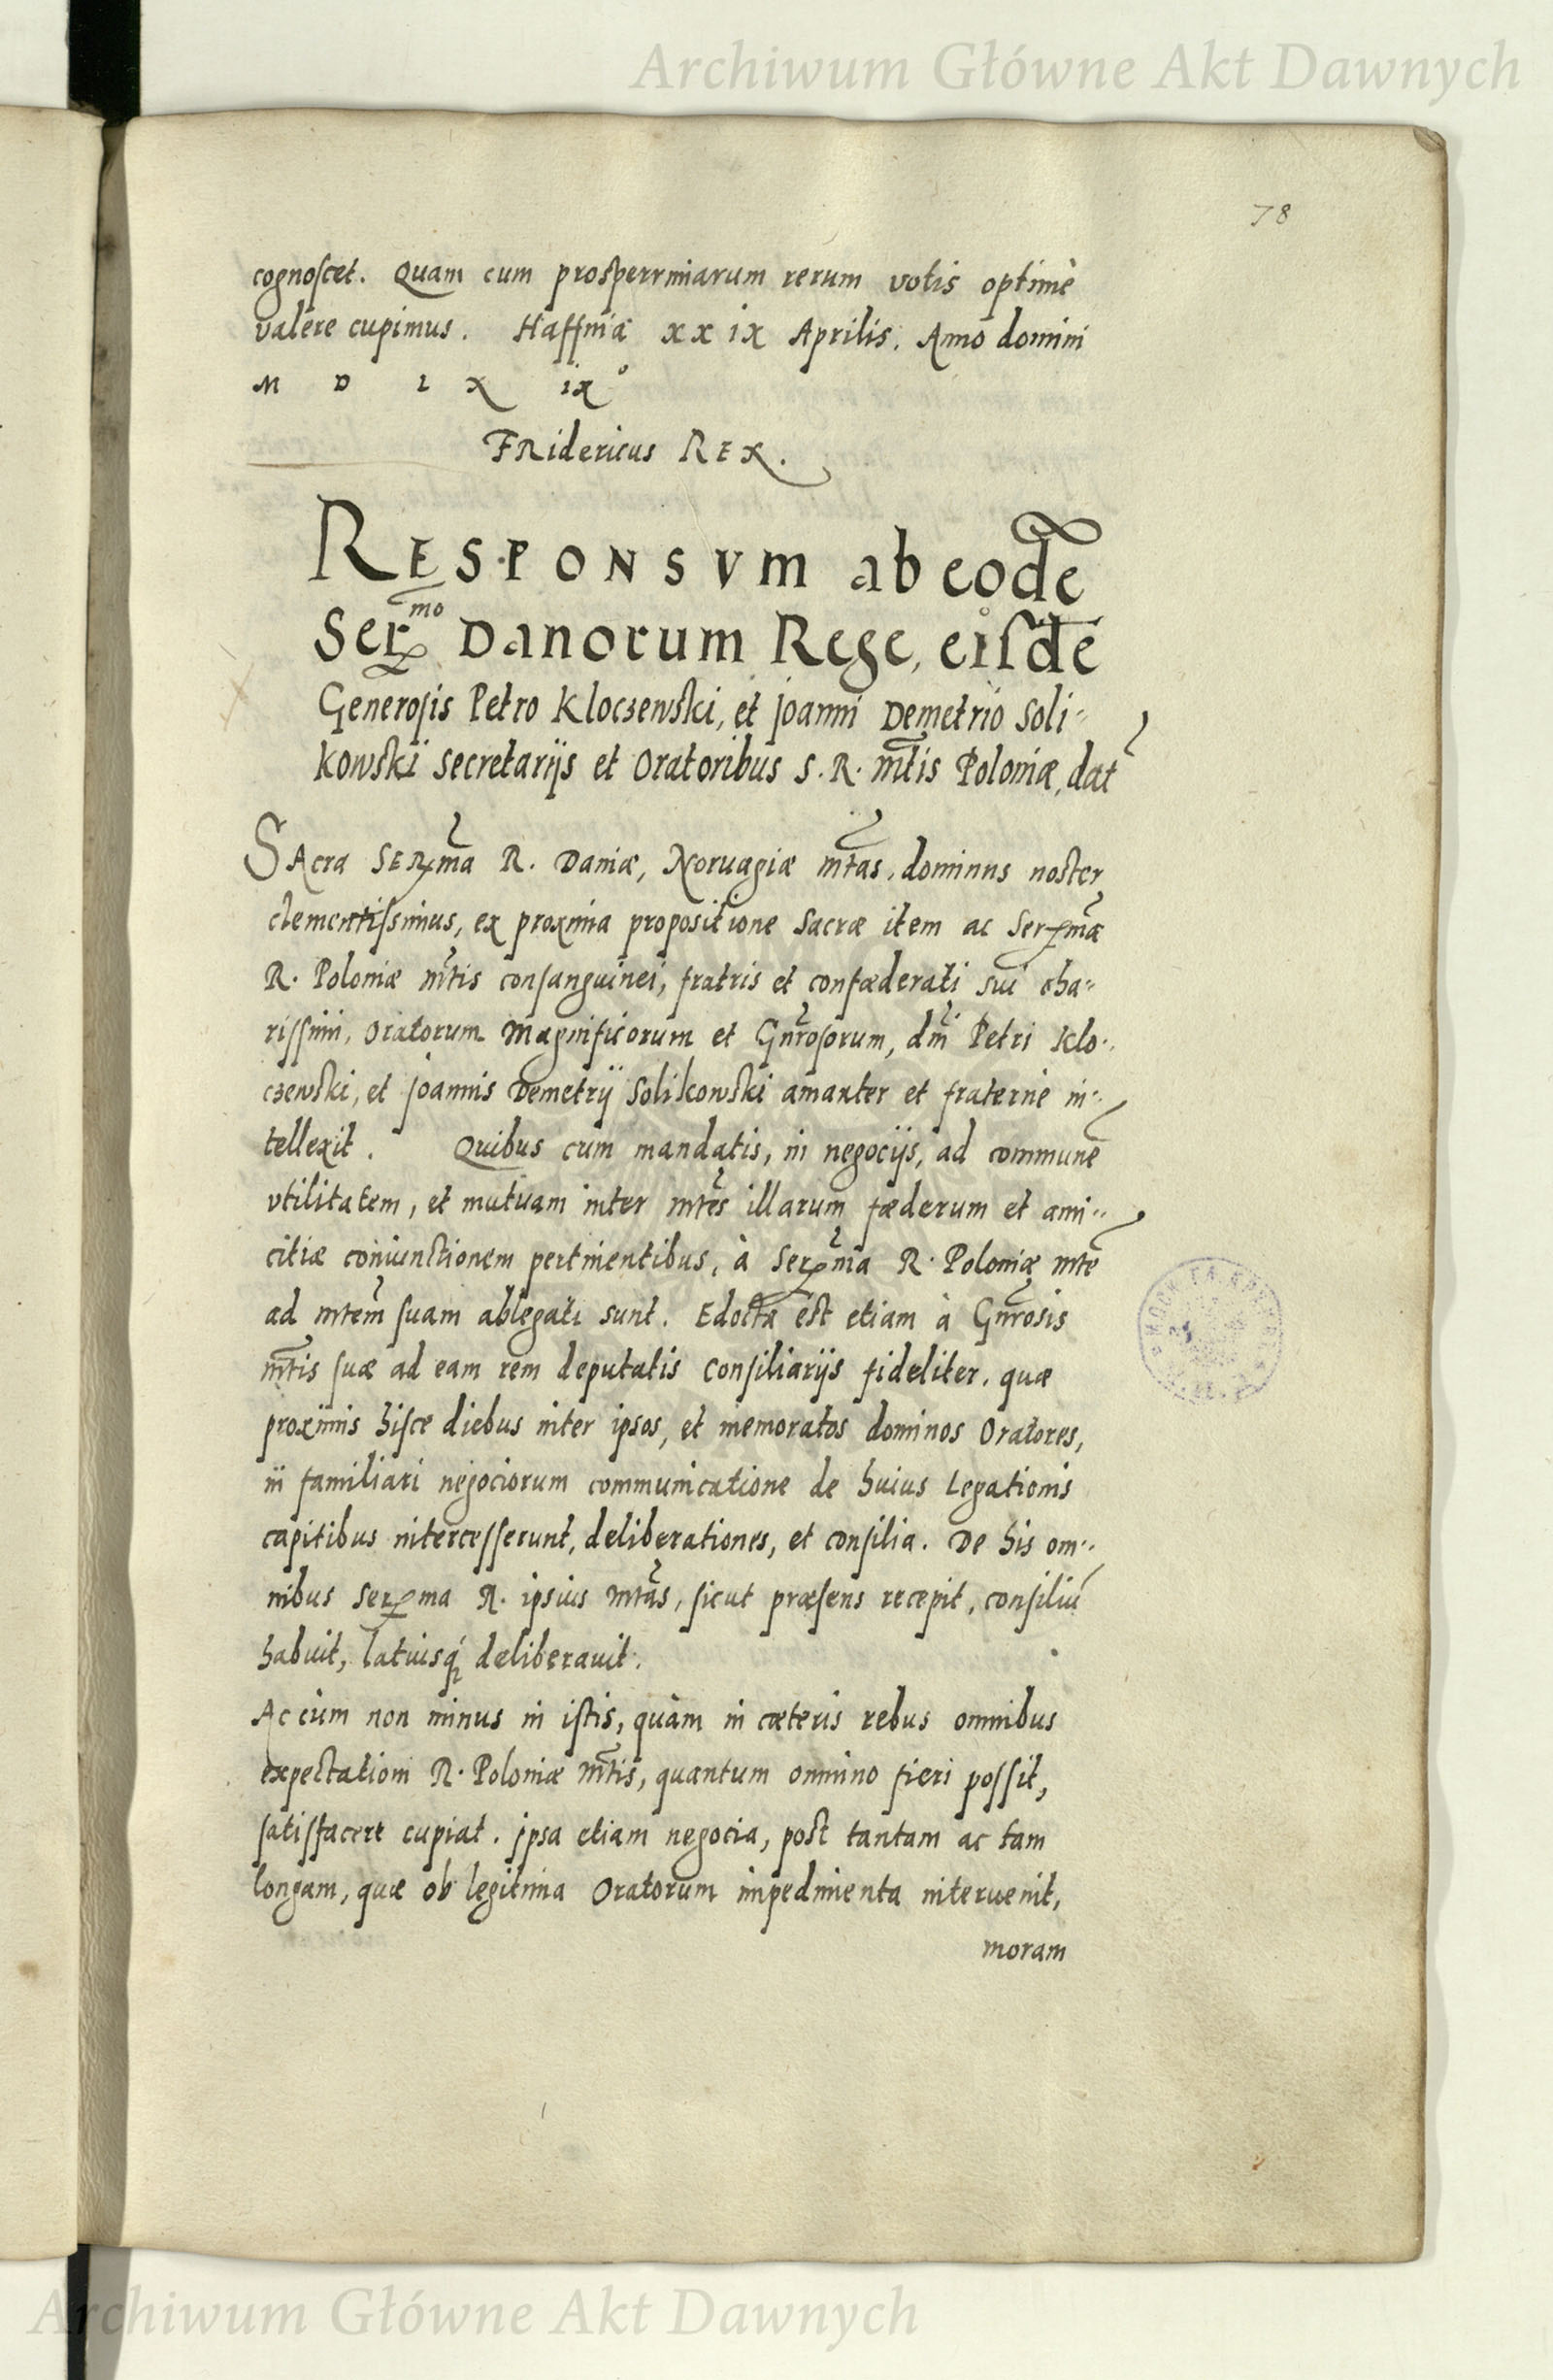 Archiwum Główne Akt Dawnych
78
cognoscet. Quam cum prosperrimarum rerum votis optimè
valere cupimus. Haffniæ xx ix Aprilis. Anno domini
M D L X ix°
FRidericus REX.
RESPONSVM ab eodē
Serᵐᵒ Danorum Rege, eisdē
Generosis Petro Kloczewski, et Joanni Demetrio Soli-
kowski Secretarijs et Oratoribus S. R. Mtis Poloniæ, dat
SAcra SERma R. Daniæ, Noruagiæ mtas, dominus noster
clementissimus, ex proxima propositione Sacræ item ac Sermæ
R. Poloniæ Mtis consanguinei, fratris et confæderati sui cha-
rissimi, Oratorum Magnificorum et Gnrosorum, dni Petri Klo-
czewski, et Joannis Demetrij Solikowski amanter et fraternè in-
tellexit. Quibus cum mandatis, in negocijs, ad communē
vtilitatem, et mutuam inter Mtes illarum fæderum et ami-
citiæ coniunctionem pertinentibus, à Serma R. Poloniæ Mte
ad Mtem suam ablegati sunt. Edocta est etiam à Gnrosis
Mtis suæ ad eam rem deputatis Consiliarijs fideliter. quæ
proximis hisce diebus inter ipsos, et memoratos dominos Oratores,
in familiari negociorum communicatione de huius Legationis
capitibus intercesserunt, deliberationes, et consilia. De his om-
nibus Serma R. ipsius Mtas, sicut præsens recepit, consiliū
habuit, latiusq́ deliberauit.
Ac cùm non minus in istis, quàm in cæteris rebus omnibus
expectationi R. Poloniæ Mtis, quantum omnino fieri possit,
satisfacere cupiat. Jpsa etiam negocia, post tantam ac tam
longam, quæ ob legitima Oratorum impedimenta interuenit,
moram
Archiwum Główne Akt Dawnych